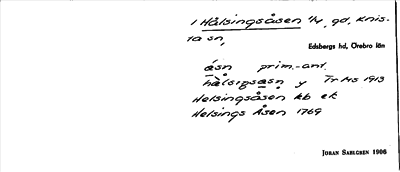 1 Hälsingsåsen ¼, gd, Knis-
ta sn,
Edsbergs hd, Örebro län
åsn prim.-ant.
hälsıŋsasn y TrHs 1913
Helsingsåsen kb ek
Helsings Åsen 1769
JÖRAN SAHLGREN 1906